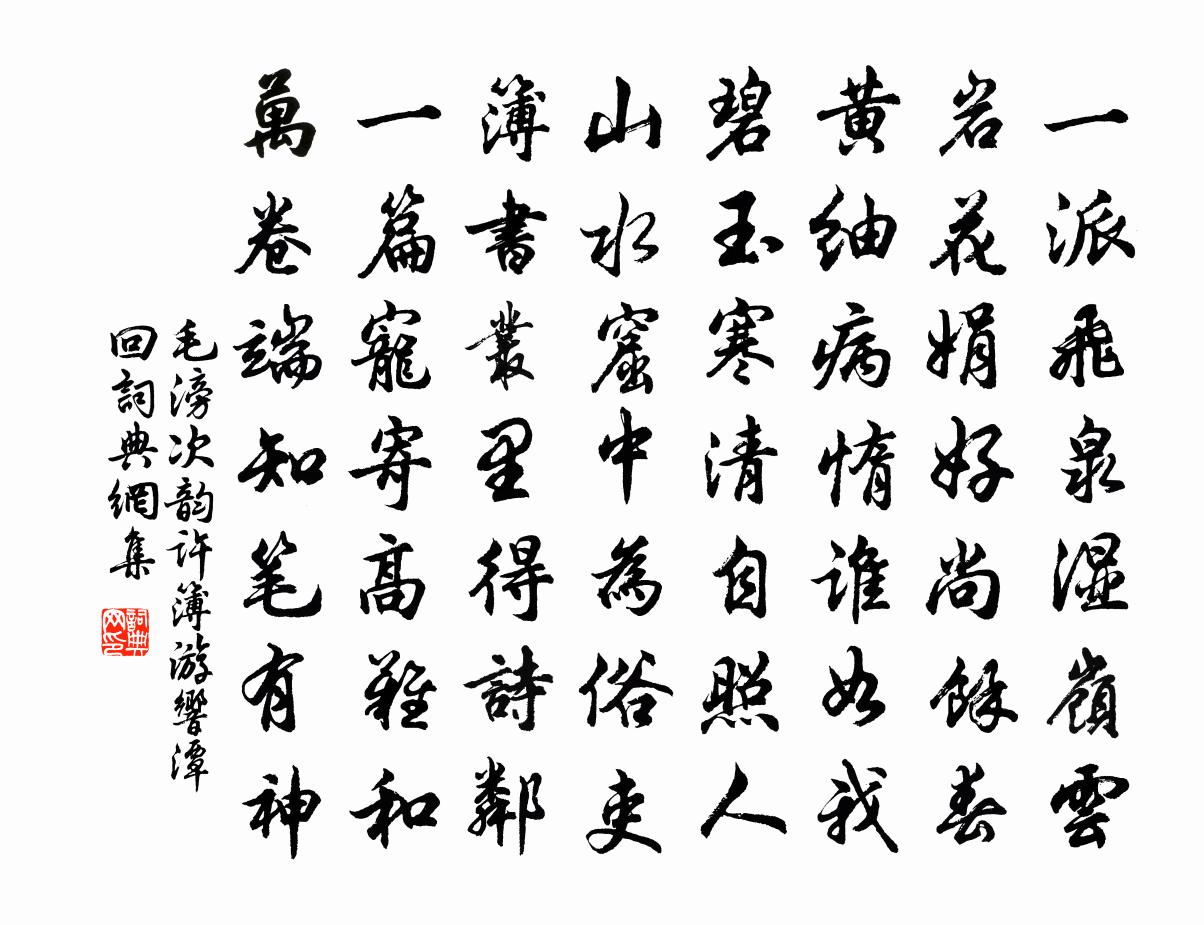 一派飛泉濕嶺雲
岩花娟好尚餘春
黃紬病惰誰如我
碧玉寒清自照人
山水窟中為俗吏
簿書叢里得詩鄰
一篇寵寄高難和
萬卷端知笔有神
毛滂次韵許簿游響潭
回詞典網集
詞典
网印